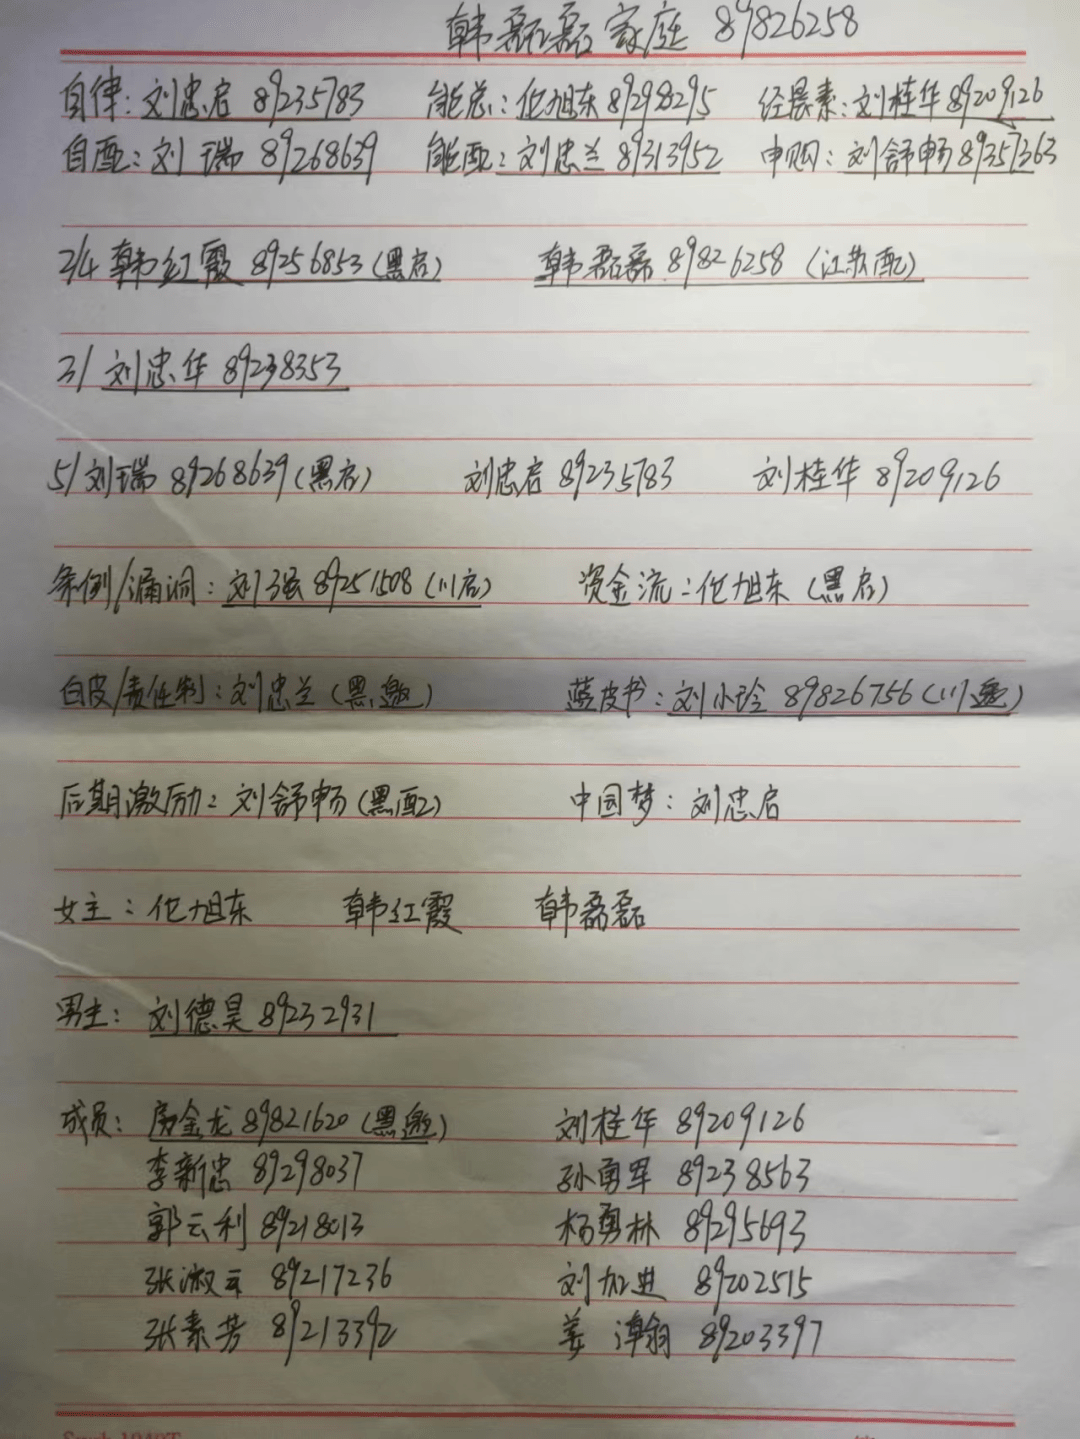 韩磊磊家庭 89826258
自律：刘忠启 89235783 能总：伦旭东89298295 经晨素：刘桂华89209126
自配：刘瑞 89268639 能配：刘忠兰 89313952 申购：刘舒畅89357363
2/4 韩红霞 89256853（黑启） 韩磊磊 89826258（江苏配）
3/ 刘忠华 89238353
5/刘瑞 89268639（黑启） 刘忠启 89235783 刘桂华 89209126
条例/漏洞：刘强 89251508（川启） 资金流：伦旭东（黑启）
白皮/责任制：刘忠兰（黑邀） 蓝皮书：刘小玲 89826756（川邀）
后期激励：刘舒畅（黑配） 中国梦：刘忠启
女主：伦旭东 韩红霞 韩磊磊
男主：刘德昊 89232931
成员：房金龙 89821620（黑邀） 刘桂华 89209126
李新忠 89298037 孙勇军 89238563
郭云利 89218013 杨勇林 89295693
张淑云 89217236 刘加进 89202515
张素芳 89213392 姜 89203397